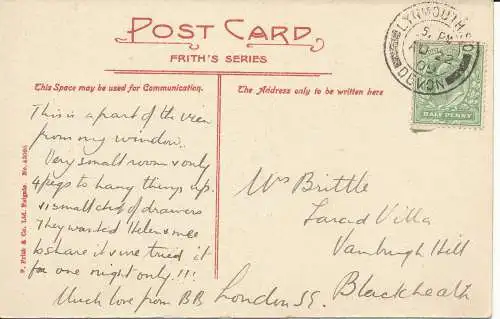 POST CARD
FRITH'S SERIES
This Space may be used for Communication.
The Address only to be written here
LYNMOUTH. S.O
5. PM
AU 22
09
DEVON
HALF PENNY
This is a part of the view
from my window.
Very small room & only
4 pegs to hang things up.
& small chest of drawers
They wanted Helen & mee
to share it & we tried it
for one night only!!!
Much love from BB
Mrs Brittle
Villa
Vanbrugh Hill
Blackheath
London S.E.
F. Frith & Co. Ltd. Reigate. No.